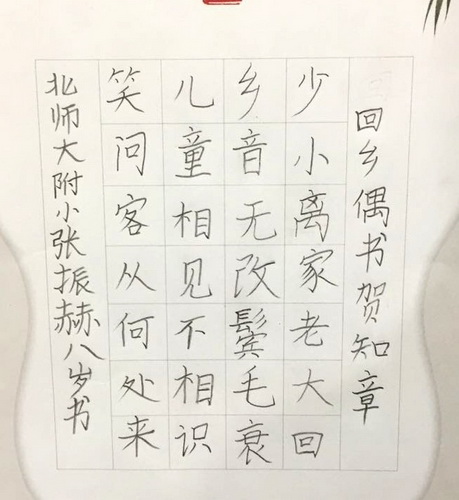 回乡偶书贺知章
少小离家老大回
乡音无改鬓毛衰
儿童相见不相识
笑问客从何处来
北师大附小张振赫八岁书